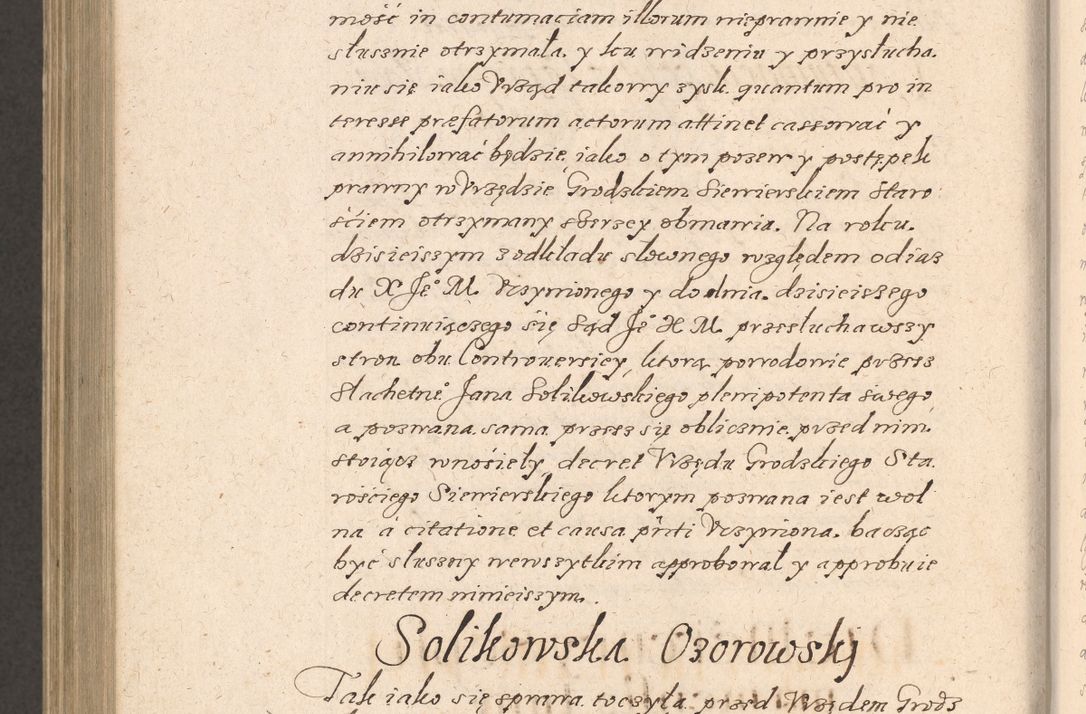 mość in contumaciam illorum nieprawnie y nie
słusznie otrzymała. y ku widzeniu y przysłucha.
niu się iako Vrząd takowy zysk. quantum pro in
teresse præfatorum actorum attinet cassować y
annihilować będzie, iako o tym pozew y postępek
prawny w Vrzędzie Grodzkiem Siewierskiem Staro
ściem otrzymany szerzey obmawia. Na roku.
dzisieiszym z odkładu słownego względem odiaz
du X Je° M. Vczynionego y do dnia. dzisieiszego
continuiączego się Sąd Je° X M. przesłuchawszy
stron obu Controuersiey, ktorą powodowie przesz
Slachetne° Jana Solikowskiego plenipotenta swego,
a pozwana. sama. przesz się oblicznie. przed nim.
stoiącz wnosiely, decret Vrzędu Grodzkiego Sta.
rościego Siewierskiego ktorym pozwana iest wol
na á citatione et causa pñti Vczyniona. bacząc
być słuszny wewszytkim approbował y approbuie
decretem ninieiszym.
Solikowska Ozorowskj
Tak iako się sprawa toczyła przed Vrzędem Grodz